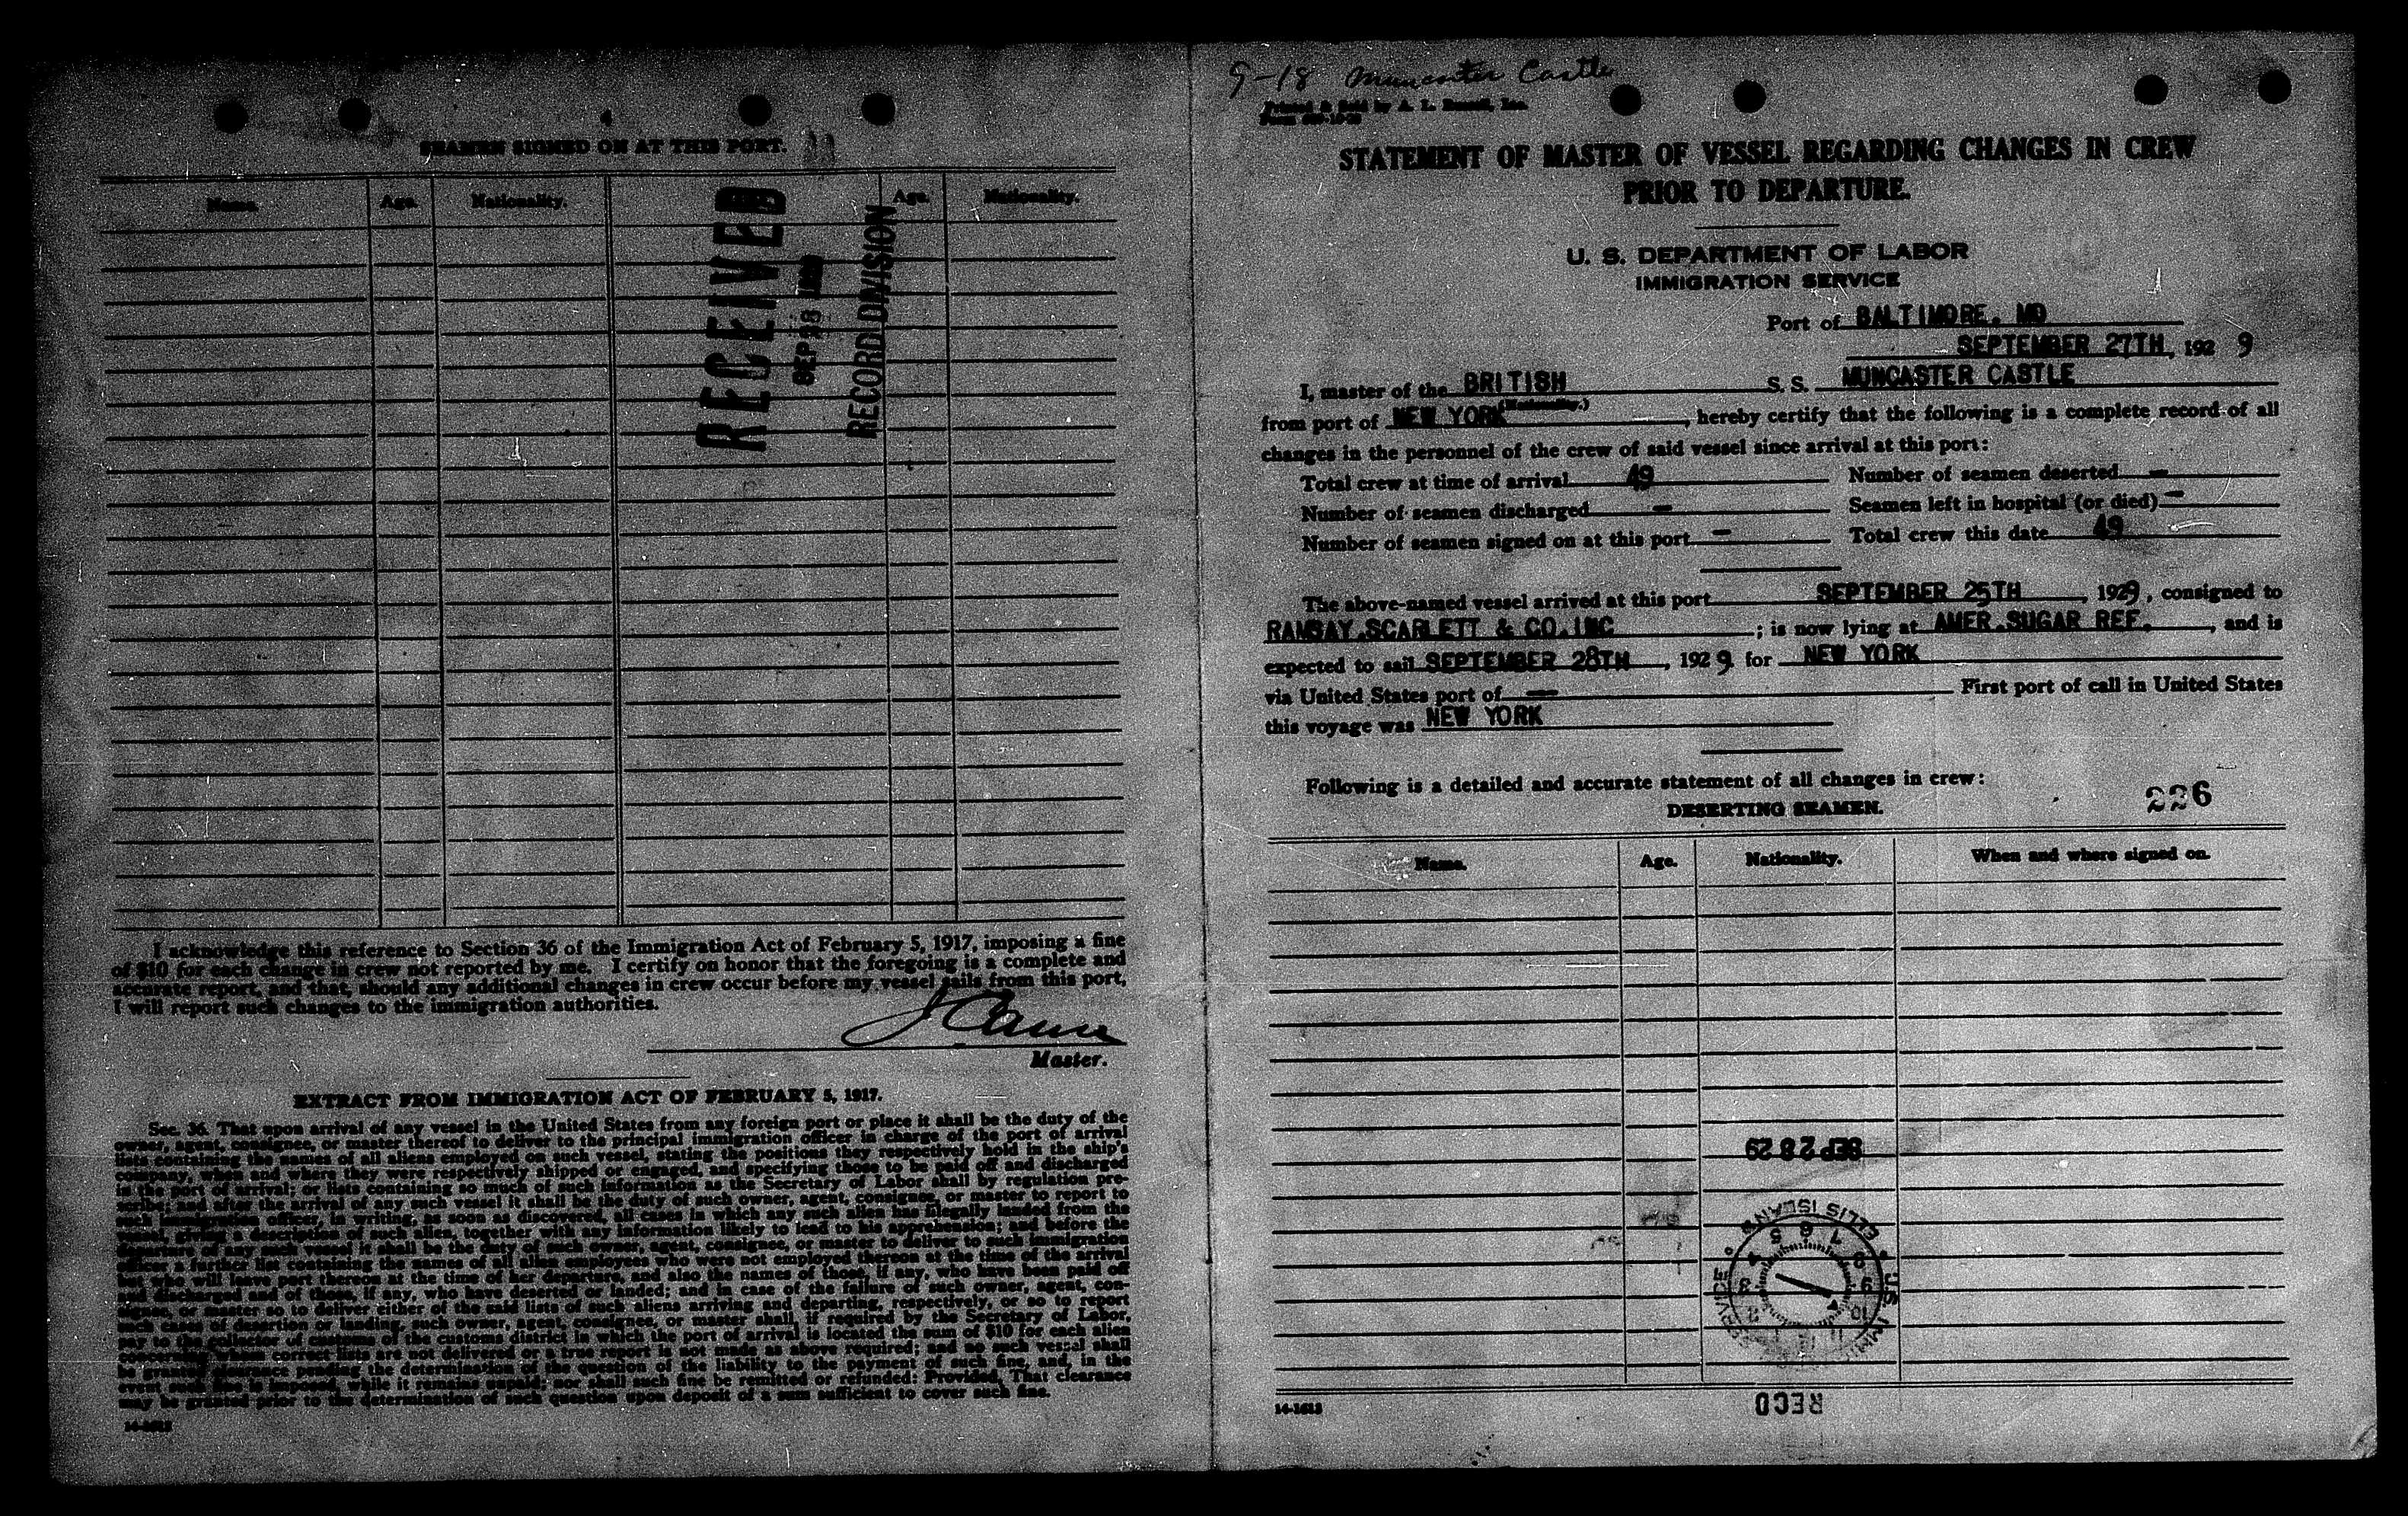 4
SEAMEN SIGNED ON AT THIS PORT.
Name. Age. Nationality. Age. Nationality.
RECEIVED
SEP 28
RECORD DIVISION
I acknowledge this reference to Section 36 of the Immigration Act of February 5, 1917, imposing a fine
of $10 for each change in crew not reported by me. I certify on honor that the foregoing is a complete and
accurate report, and that, should any additional changes in crew occur before my vessel sails from this port,
I will report such changes to the immigration authorities.
Master.
EXTRACT FROM IMMIGRATION ACT OF FEBRUARY 5, 1917.
Sec. 36. That upon arrival of any vessel in the United States from any foreign port or place it shall be the duty of the
owner, agent, consignee, or master thereof to deliver to the principal immigration officer in charge of the port of arrival
lists containing the names of all aliens employed on such vessel, stating the positions they respectively hold in the ship's
company, when and where they were respectively shipped or engaged, and specifying those to be paid off and discharged
in the port of arrival; or lists containing so much of such information as the Secretary of Labor shall by regulation pre-
scribe; and after the arrival of any such vessel it shall be the duty of such owner, agent, consignee, or master to report to
such immigration officer, in writing, as soon as discovered, all cases in which any such alien has illegally landed from the
vessel, giving a description of such alien, together with any information likely to lead to his apprehension; and before the
departure of any such vessel it shall be the duty of such owner, agent, consignee, or master to deliver to such immigration
officer a further list containing the names of all alien employees who were not employed thereon at the time of the arrival
but who will leave port thereon at the time of her departure, and also the names of those, if any, who have been paid off
and discharged and of those, if any, who have deserted or landed; and in case of the failure of such owner, agent, con-
signee, or master so to deliver either of the said lists of such aliens arriving and departing, respectively, or so to report
such cases of desertion or landing, such owner, agent, consignee, or master shall, if required by the Secretary of Labor,
pay to the collector of customs of the customs district in which the port of arrival is located the sum of $10 for each alien
concerning whom correct lists are not delivered or a true report is not made as above required; and no such vessel shall
be granted clearance pending the determination of the question of the liability to the payment of such fine, and, in the
event such fine is imposed, while it remains unpaid; nor shall such fine be remitted or refunded: Provided, That clearance
may be granted prior to the determination of such question upon deposit of a sum sufficient to cover such fine.
9-18 Muncaster Castle
Printed & Sold by A. L. Inc.
STATEMENT OF MASTER OF VESSEL REGARDING CHANGES IN CREW
PRIOR TO DEPARTURE.
U. S. DEPARTMENT OF LABOR
IMMIGRATION SERVICE
Port of BALTIMORE. MD
SEPTEMBER 27TH, 1929
I, master of the BRITISH S. S. MUNCASTER CASTLE
(Nationality.)
from port of NEW YORK, hereby certify that the following is a complete record of all
changes in the personnel of the crew of said vessel since arrival at this port:
Total crew at time of arrival 49 Number of seamen deserted —
Number of seamen discharged — Seamen left in hospital (or died) —
Number of seamen signed on at this port — Total crew this date 49
The above-named vessel arrived at this port SEPTEMBER 25TH, 1929, consigned to
RAMSAY.SCARLETT & CO.INC; is now lying at AMER.SUGAR REF., and is
expected to sail SEPTEMBER 28TH, 1929 for NEW YORK
via United States port of — First port of call in United States
this voyage was NEW YORK
Following is a detailed and accurate statement of all changes in crew:
226
DESERTING SEAMEN.
Name. Age. Nationality. When and where signed on.
SEP 28 29
ELLIS ISLAND
U.S. IMMI SERVICE
3 4 5 6 7 8 9 10 11
RECD
14-1613